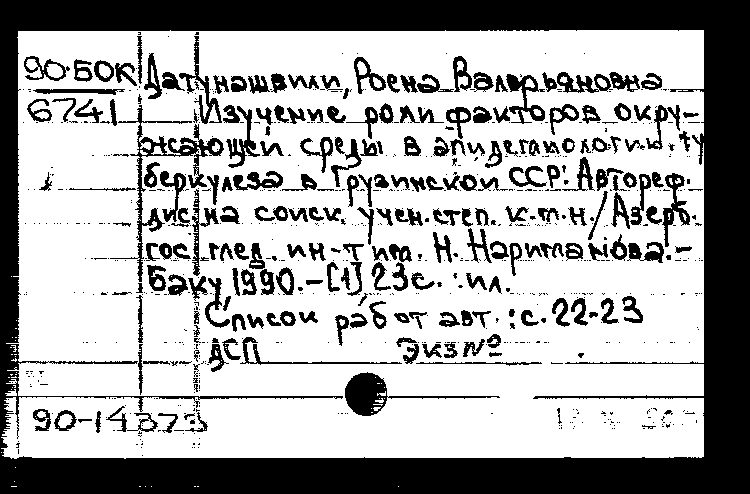 90-БОК Датунашвили, Роена Валерьяновна
6741 Изучение роли факторов окру-
жающей среды в эпидемиологии ту
беркулеза в Грузинской ССР: Автореф.
дис. на соиск. учен. степ. к.м.н. / Азерб.
гос. мед. ин-т им. Н. Нариманова. -
Баку, 1990. - [1] 23 с. : ил.
Список работ авт.: с. 22-23
ДСП Экз №
90-14373